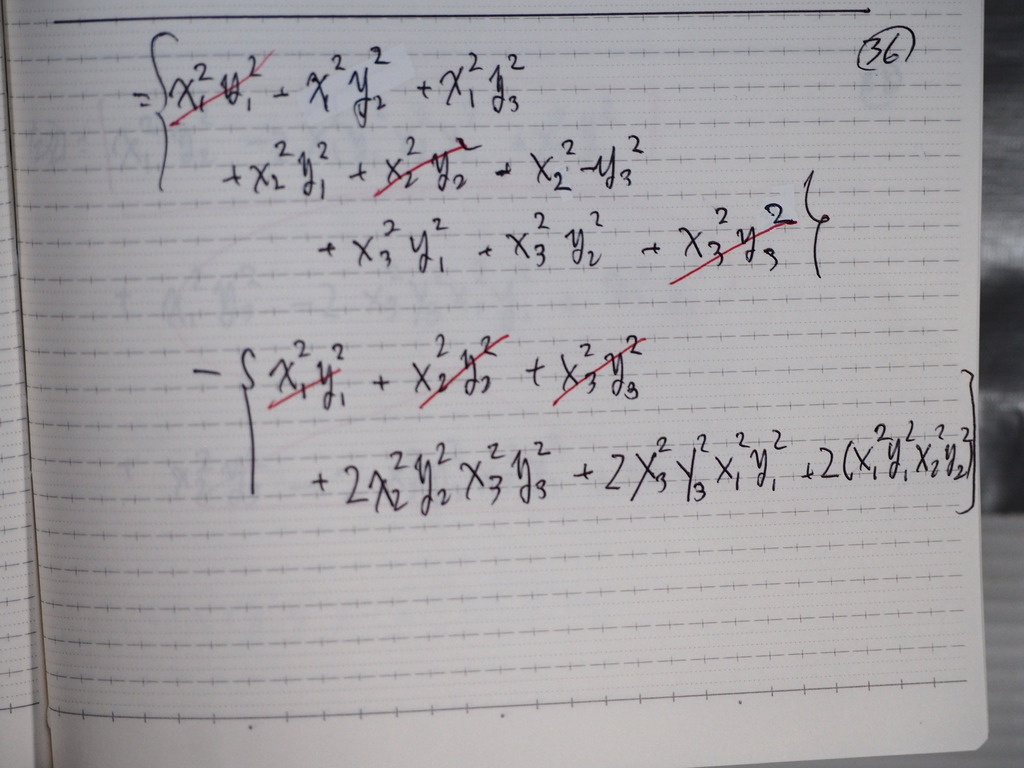 (36)
= { x₁² y₁² + x² y₂² + x₁² y₃²
+ x₂² y₁² + x₂² y₂² + x₂² - y₃²
+ x₃² y₁² + x₃² y₂² + x₃² y₃² }
- { x₁² y₁² + x₂² y₂² + x₃² y₃²
+ 2x₂² y₂² x₃² y₃² + 2x₃² y₃² x₁² y₁² + 2(x₁² y₁² x₂² y₂²) }